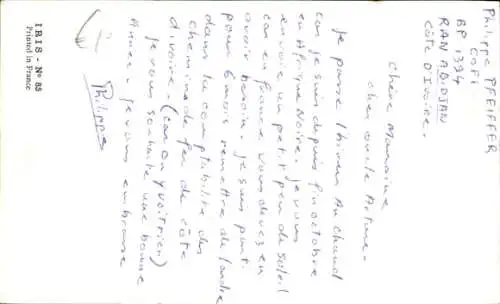 Philippe PFEIFFER
COFI
BP 1394
RAN ABIDJAN
Côte D'Ivoire.
Chère Marraine
cher oncle
Je passe l'hiver au chaud
car je suis depuis fin octobre
en Afrique Noire. Je vous
envoie un petit peu de soleil
car en France vous devez en
avoir besoin. Je suis parti
pour 6 mois remettre de l'ordre
dans la comptabilité des
chemins de fer de côte
d'ivoire. (
Je vous souhaite une bonne
Année. Je vous embrasse
Philippe
IRIS - N° 85
Printed in France